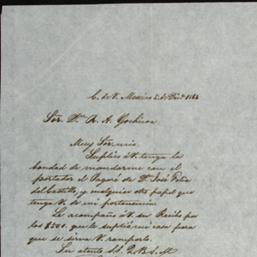 C. de V. Mexico 2 de Dic.e 1853
Sor. Dn. R. A.
Muy Sor. mio
Suplico á V. tenga la
bondad de mandarme con el
portador el Pagaré de D. José
del Castillo, y cualquier otro papel que
tenga V. de mi pertenencia.
Le acompaño á V. un Recibo por
los $501. que le suplió mi casa para
que se sirva V. romperlo.
Su atento S.S. Q.B.S.M.